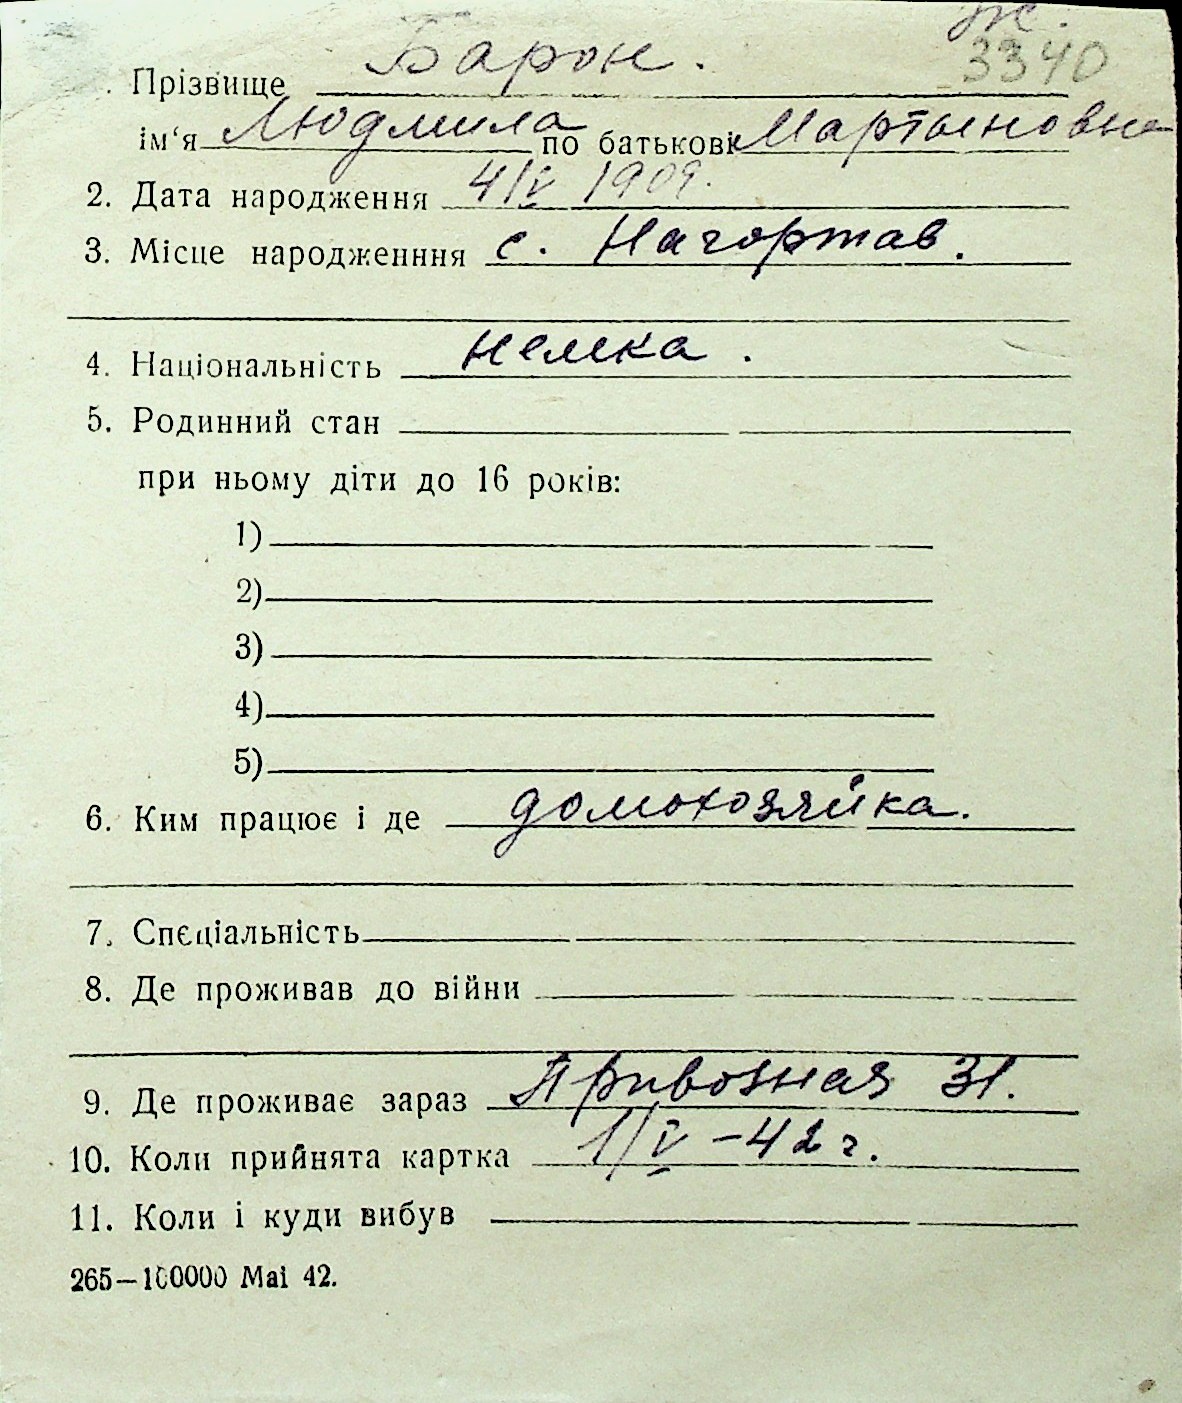 ж.
3340
. Прізвище Барон.
ім‘я Людмила по батькові Мартыновна
2. Дата народження 4/V 1909.
3. Місце народженння с. Нагортав.
4. Національність немка.
5. Родинний стан
при ньому діти до 16 років:
1)
2)
3)
4)
5)
6. Ким працює і де домохозяйка.
7. Спєціальність
8. Де проживав до війни
9. Де проживає зараз Привозная 31.
10. Коли прийнята картка 1/V – 42 г.
11. Коли і куди вибув
265—100000 Mai 42.